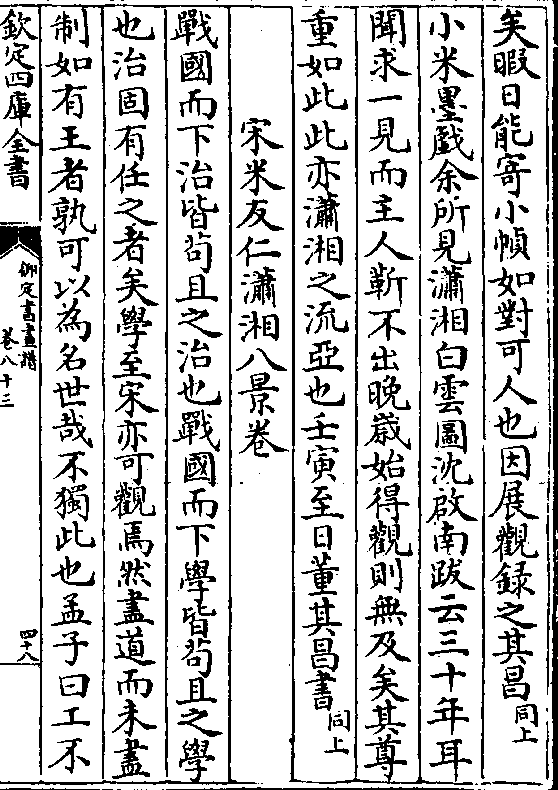 矣暇日能寄小幀如對可人也因展觀録之其昌同上
小米墨戲余所見瀟湘白雲圖沈啟南跋云三十年耳
聞求一見而主人靳不出晚歳始得觀則無及矣其尊
重如此此亦瀟湘之流亞也壬寅至日董其昌書同上
宋米友仁瀟湘八景卷
戰國而下治皆茍且之治也戰國而下學皆茍且之學
也治固有任之者矣學至宋亦可觀焉然盡道而未盡
制如有王者孰可以為名世哉不獨此也孟子曰工不
欽定四庫全書
御定書畫譜
卷八十三
四十八